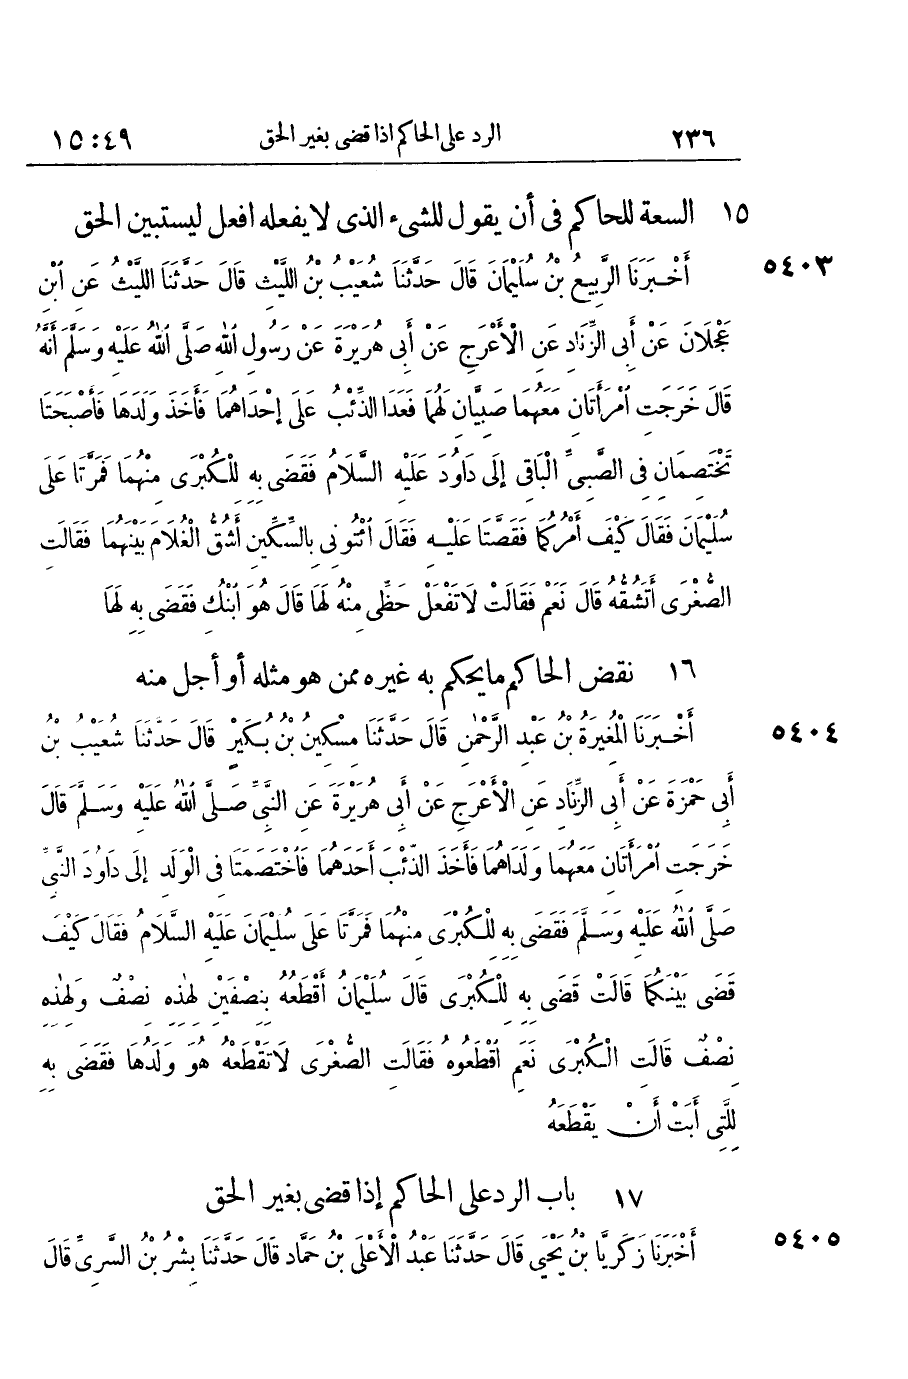 ٢٣٦ الرد على الحاكم اذا قضى بغير الحق ١٥:٤٩
١٥ السعة للحاكم فى أن يقول للشىء الذى لا يفعله افعل ليستبين الحق
٥٤٠٣ أَخْبَرَنَا الرَّبِيعُ بْنُ سُلَيْمَانَ قَالَ حَدَّثَنَا شُعَيْبُ بْنُ اللَّيْثِ قَالَ حَدَّثَنَا اللَّيْثُ عَنِ ٱبْنِ
عَجْلَانَ عَنْ أَبِى الزِّنَادِ عَنِ الْأَعْرَجِ عَنْ أَبِى هُرَيْرَةَ عَنْ رَسُولِ ٱللهِ صَلَّى ٱللهُ عَلَيْهِ وَسَلَّمَ أَنَّهُ
قَالَ خَرَجَتِ ٱمْرَأَتَانِ مَعَهُمَا صَبِيَّانِ لَهُمَا فَعَدَا الذِّئْبُ عَلَى إِحْدَاهُمَا فَأَخَذَ وَلَدَهَا فَأَصْبَحَتَا
تَخْتَصِمَانِ فِى الصَّبِىِّ الْبَاقِى إِلَى دَاوُدَ عَلَيْهِ السَّلَامُ فَقَضَى بِهِ لِلْكُبْرَى مِنْهُمَا فَمَرَّتَا عَلَى
سُلَيْمَانَ فَقَالَ كَيْفَ أَمْرُكُمَا فَقَصَّتَا عَلَيْهِ فَقَالَ ٱئْتُونِى بِالسِّكِّينِ أَشُقُّ الْغُلَامَ بَيْنَهُمَا فَقَالَتِ
الصُّغْرَى أَتَشُقُّهُ قَالَ نَعَمْ فَقَالَتْ لَا تَفْعَلْ حَظِّى مِنْهُ لَهَا قَالَ هُوَ ٱبْنُكِ فَقَضَى بِهِ لَهَا
١٦ نقض الحاكم ما يحكم به غيره ممن هو مثله أو أجل منه
٥٤٠٤ أَخْبَرَنَا الْمُغِيرَةُ بْنُ عَبْدِ الرَّحْمٰنِ قَالَ حَدَّثَنَا مِسْكِينُ بْنُ بُكَيْرٍ قَالَ حَدَّثَنَا شُعَيْبُ بْنُ
أَبِى حَمْزَةَ عَنْ أَبِى الزِّنَادِ عَنِ الْأَعْرَجِ عَنْ أَبِى هُرَيْرَةَ عَنِ النَّبِىِّ صَلَّى ٱللهُ عَلَيْهِ وَسَلَّمَ قَالَ
خَرَجَتِ ٱمْرَأَتَانِ مَعَهُمَا وَلَدَاهُمَا فَأَخَذَ الذِّئْبُ أَحَدَهُمَا فَٱخْتَصَمَتَا فِى الْوَلَدِ إِلَى دَاوُدَ النَّبِىِّ
صَلَّى ٱللهُ عَلَيْهِ وَسَلَّمَ فَقَضَى بِهِ لِلْكُبْرَى مِنْهُمَا فَمَرَّتَا عَلَى سُلَيْمَانَ عَلَيْهِ السَّلَامُ فَقَالَ كَيْفَ
قَضَى بَيْنَكُمَا قَالَتْ قَضَى بِهِ لِلْكُبْرَى قَالَ سُلَيْمَانُ أَقْطَعُهُ بِنِصْفَيْنِ لِهٰذِهِ نِصْفٌ وَلِهٰذِهِ
نِصْفٌ قَالَتِ الْكُبْرَى نَعَمِ ٱقْطَعُوهُ فَقَالَتِ الصُّغْرَى لَا تَقْطَعْهُ هُوَ وَلَدُهَا فَقَضَى بِهِ
لِلَّتِى أَبَتْ أَنْ يَقْطَعَهُ
١٧ باب الرد على الحاكم إذا قضى بغير الحق
٥٤٠٥ أَخْبَرَنَا زَكَرِيَّا بْنُ يَحْيَى قَالَ حَدَّثَنَا عَبْدُ الْأَعْلَى بْنُ حَمَّادٍ قَالَ حَدَّثَنَا بِشْرُ بْنُ السَّرِىِّ قَالَ